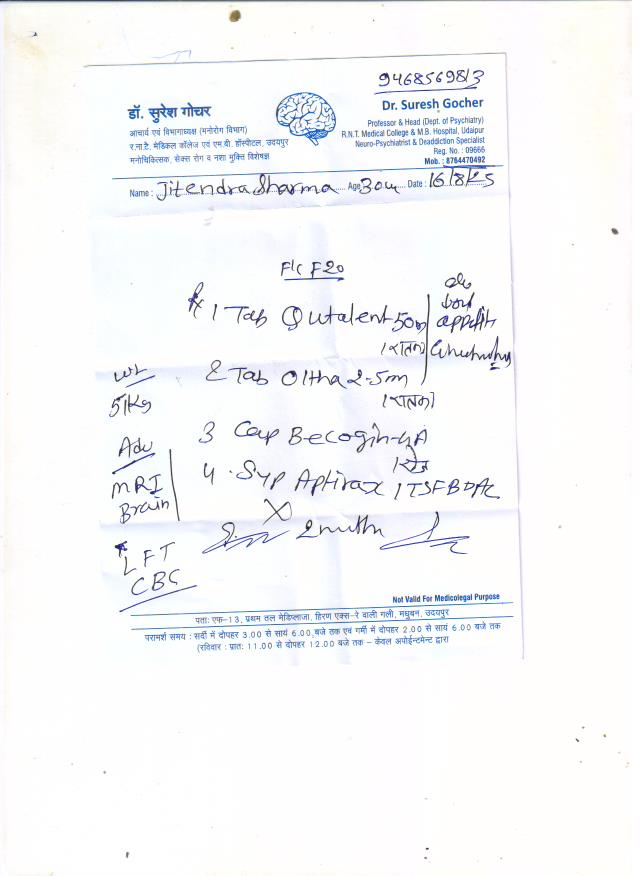 9468569813
डॉ. सुरेश गोचर
आचार्य एवं विभागाध्यक्ष (मनोरोग विभाग)
र.ना.टै. मेडिकल कॉलेज एवं एम.बी. हॉस्पीटल, उदयपुर
मनोचिकित्सक, सेक्स रोग व नशा मुक्ति विशेषज्ञ
Dr. Suresh Gocher
Professor & Head (Dept. of Psychiatry)
R.N.T. Medical College & M.B. Hospital, Udaipur
Neuro-Psychiatrist & Deaddiction Specialist
Reg. No. : 09666
Mob. : 8764470492
Name : Jitendra Sharma Age 30 Date : 16/8/25
F20
1 Tab Qutalent 50m
appetite
2 Tab Oltha 2.5m
Wt
51Kg
3 Cap Becogin
Adv
MRI
Brain
4. Syp Aptivax 1TSF BD
LFT
CBC
Not Valid For Medicolegal Purpose
पता: एफ-13, प्रथम तल मेडिप्लाजा, हिरण एक्स-रे वाली गली, मधुबन, उदयपुर
परामर्श समय : सर्दी में दोपहर 3.00 से सायं 6.00 बजे तक एवं गर्मी में दोपहर 2.00 से सायं 6.00 बजे तक
(रविवार : प्रात: 11.00 से दोपहर 12.00 बजे तक – केवल अपोईन्टमेन्ट द्वारा